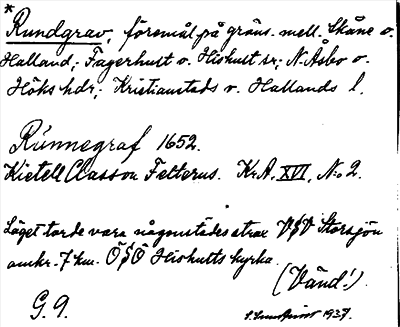 *
Rundgrav, föremål på gräns. mell. Skåne o.
Halland; Fagerhult o. Hishult sr; N. Åsbo o.
Höks hdr; Kristianstads o. Hallands l.
Rúnnegraf 1652.
Kietell Classon Felterus. Kr.A. XVI. No 2.
Läget torde vara någonstädes strax VSV Storsjön
omkr. 7 km. ÖSÖ Hishults kyrka.
(Vänd!)
G. 9.
1937.